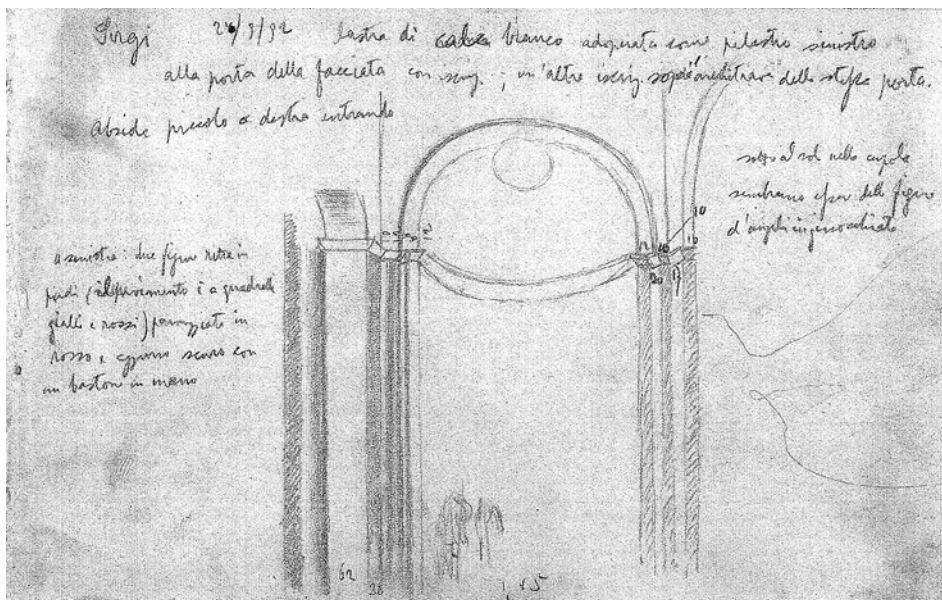 Sirgi 24/9/92 lastra di calce bianco adoperata come pilastro sinistro
alla porta della facciata con iscriz.; un'altre iscriz. sopra architrave della stessa porta.
Abside piccolo a destra entrando
sotto al sol nella cupola
sembrano esser delle figure
d'angeli inginocchiato
a sinistra due figure ritte in
piedi (il pavimento è a quadrelli
gialli e rossi) panneggiate in
rosso, e azzurro scuro con
un bastone in mano
12
10
10
10
20
17
62
38
1,45